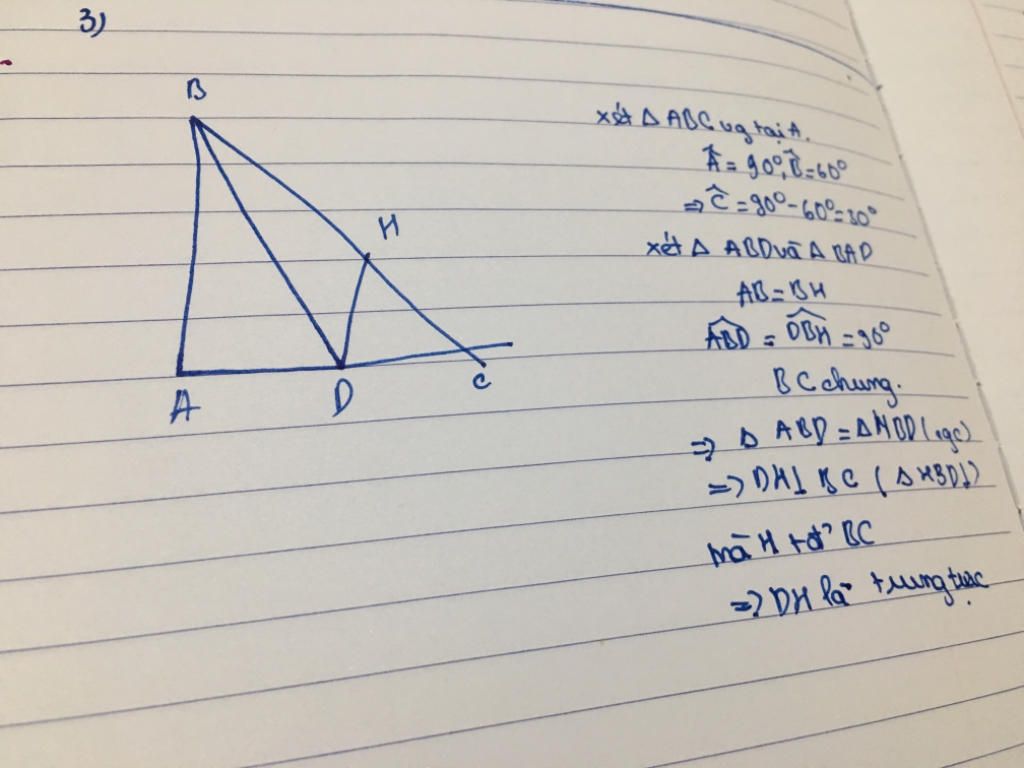 3)
B
H
A
D
C
xét Δ ABC vg tại A.
Â = 90°, B̂ = 60°
⇒ Ĉ = 90° - 60° = 30°
xét Δ ABD và Δ BAD
AB = BH
ABD̂ = DBĤ = 90°
BC chung.
⇒ Δ ABD = Δ HBD (cgc)
=> DH ⊥ BC (Δ HBD⊥)
mà H tđ BC
=> DH là trung trực